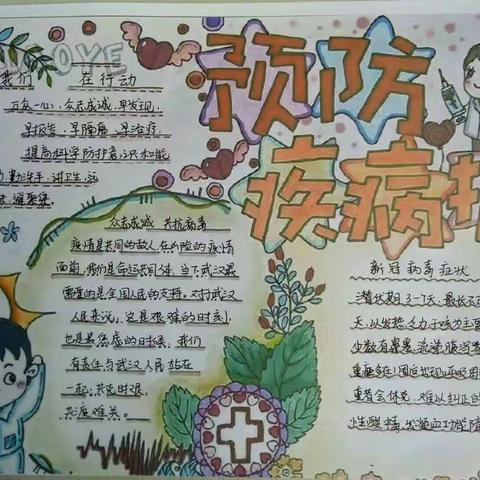 LOVE
预防
疾病
我们 在行动
万众一心，众志成城，早发现，
早报告，早隔离，早治疗
提高科学防护意识和能
勤洗手，讲卫生，远
众志成城 共抗病毒
疫情是共同的敌人，在凶险的疫情
面前，我们是命运共同体，当下武汉最
需要的是全国人民的支持，对于武汉
人民来说，这是艰难的时刻，
也是最焦虑的时候，我们
有责任与武汉人民站在
一起，共克时艰，
共渡难关。
新冠病毒症状
潜伏期3-7天，最长不
天，以发热、乏力、干咳为主要
少数有鼻塞、流涕、腹泻
重症多在1周后出现呼吸
重者会休克，难以纠正的
性酸中毒，出凝血功能障